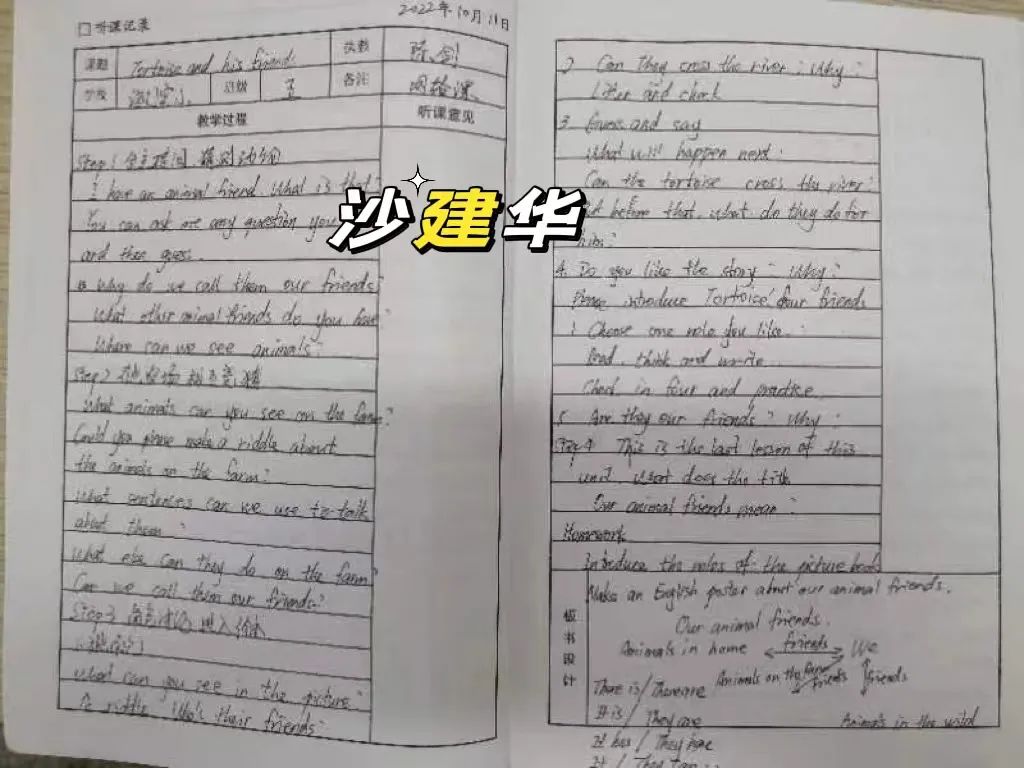 听课记录
2022年10月18日
课题 Tortoise and his friend. 执教 陈剑
学校 班级 五 备注 网络课.
教学过程 听课意见
Step 1
I have an animal friend. What is that?
You can ask me any question you
and then guess.
why do we call them our friends?
What other animal friends do you have?
Where can we see animals?
Step 2
What animals can you see on the farm?
Could you please make a riddle about
the animals on the farm?
What sentences can we use to talk
about them?
What else can they do on the farm?
Can we call them our friends?
Step 3
What can you see in the picture?
A riddle Who's their friends?
沙建华
2 Can They cross the river? Why?
Listen and check
3 Guess and say
What will happen next?
Can the tortoise cross the river?
before that, what do they do for
him?
4. Do you like the story? Why?
Please introduce Tortoise' four friends
1 Choose one role you like.
Read, think and write
Check in four and practise
5 Are they our friends? Why?
Step 4 This is the last lesson of this
unit. What does the title
Our animal friends mean?
Homework
Introduce the roles of the picture book
板书设计
Make an English poster about our animal friends.
Our animal friends.
Animals in home friends We
Animals on the farm friends friends
There is / There are
It is / They are
Animals in the wild
It has / They have
It / They can ..